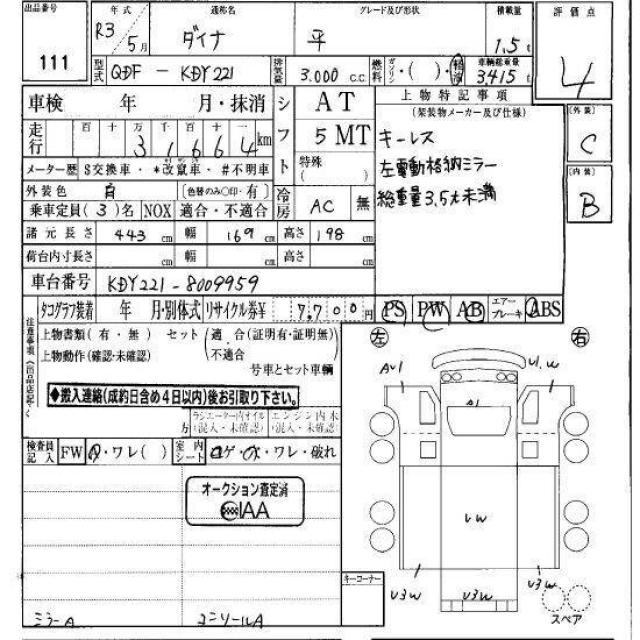 出品番号 111
年式 R3 / 5月
通称名 ダイナ
グレード及び形状 平
積載量 1.5t
評価点 4
型式 QDF - KDY221
排気量 3.000 c.c.
燃料 ガソリン・( )・軽油
車輌総重量 3415t
車検 年 月・抹消
シフト AT 5MT
特殊( )
上物特記事項
(架装物メーカー及び仕様)
キーレス
左電動格納ミラー
総重量3.5t未満
外装 C
内装 B
走行 百 十 万 千 百 十
3 1 6 6 4 km
メーター歴 S交換車・*改竄車・#不明車
外装色 白 (色替のみ○印・有)
乗車定員(3)名 NOX 適合・不適合
冷房 AC 無
諸元長さ 443cm 幅 169cm 高さ 198cm
荷台内寸長さ cm 幅 cm 高さ cm
車台番号 KDY221-8009959
タコグラフ装着 年 月・別体式 リサイクル券¥ 7,700
PS PW AB エアーブレーキ ABS
上物書類(有・無) セット(適合(証明有・証明無)
不適合
上物動作(確認・未確認) 号車とセット車輌
◆搬入連絡(成約日含め4日以内)後お引取り下さい。
ラジエーター内オイル(混入・未確認) エンジン内水(混入・未確認)
検査員記入 FW A・ワレ( ) 室内シート コゲ・ ・ワレ・破れ
オークション査定済
IAA
左 右
AV1
V1.W
A1
VW
V3W V3W V3W
キーコーナー
スペア
ミラーA コンソールA